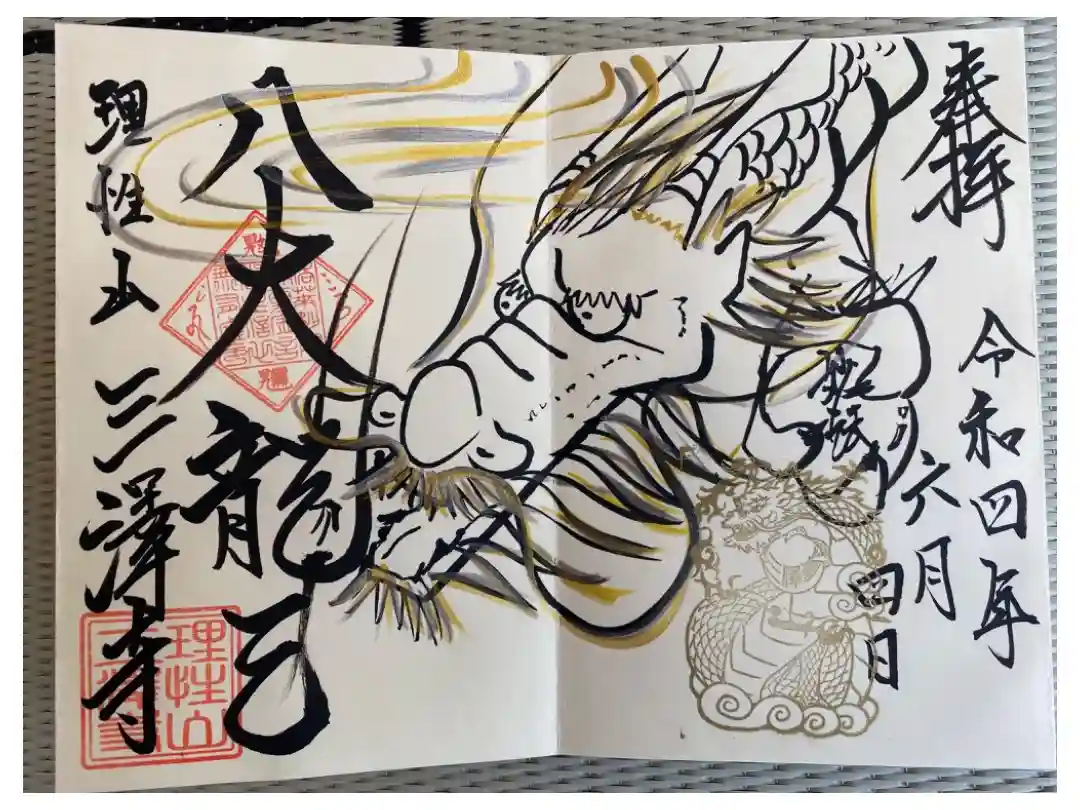 奉拝
令和四年
六月
四日
八大龍王
理性山 三澤寺
理性山